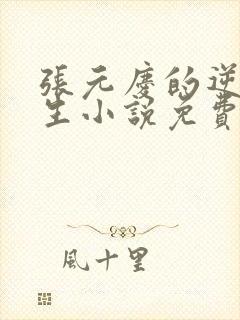 張元慶的逆
生小説免費
風十里